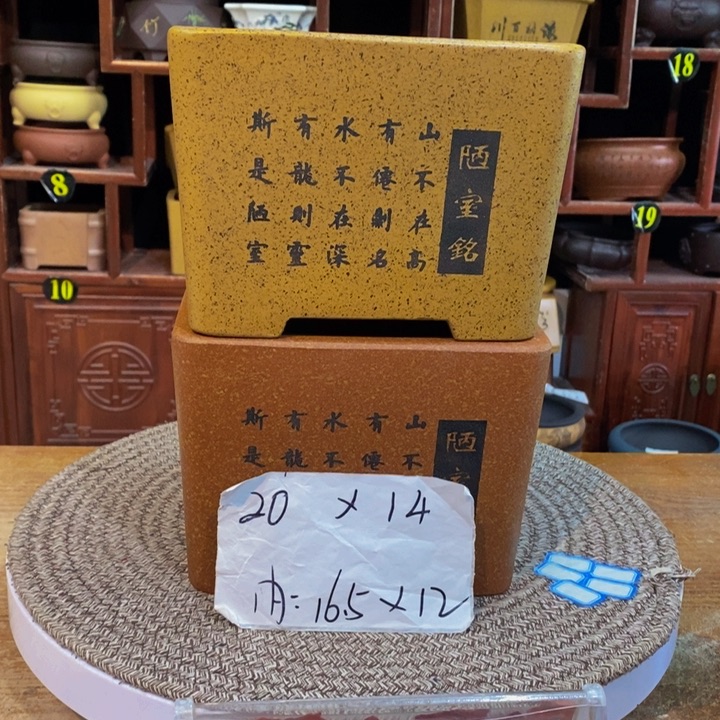 陋室銘
山不在高
有僊則名
水不在深
有龍則靈
斯是陋室
陋
山不
有僊
水不
有龍
斯是
20 × 14
内: 16.5 × 12
竹
8
10
18
19